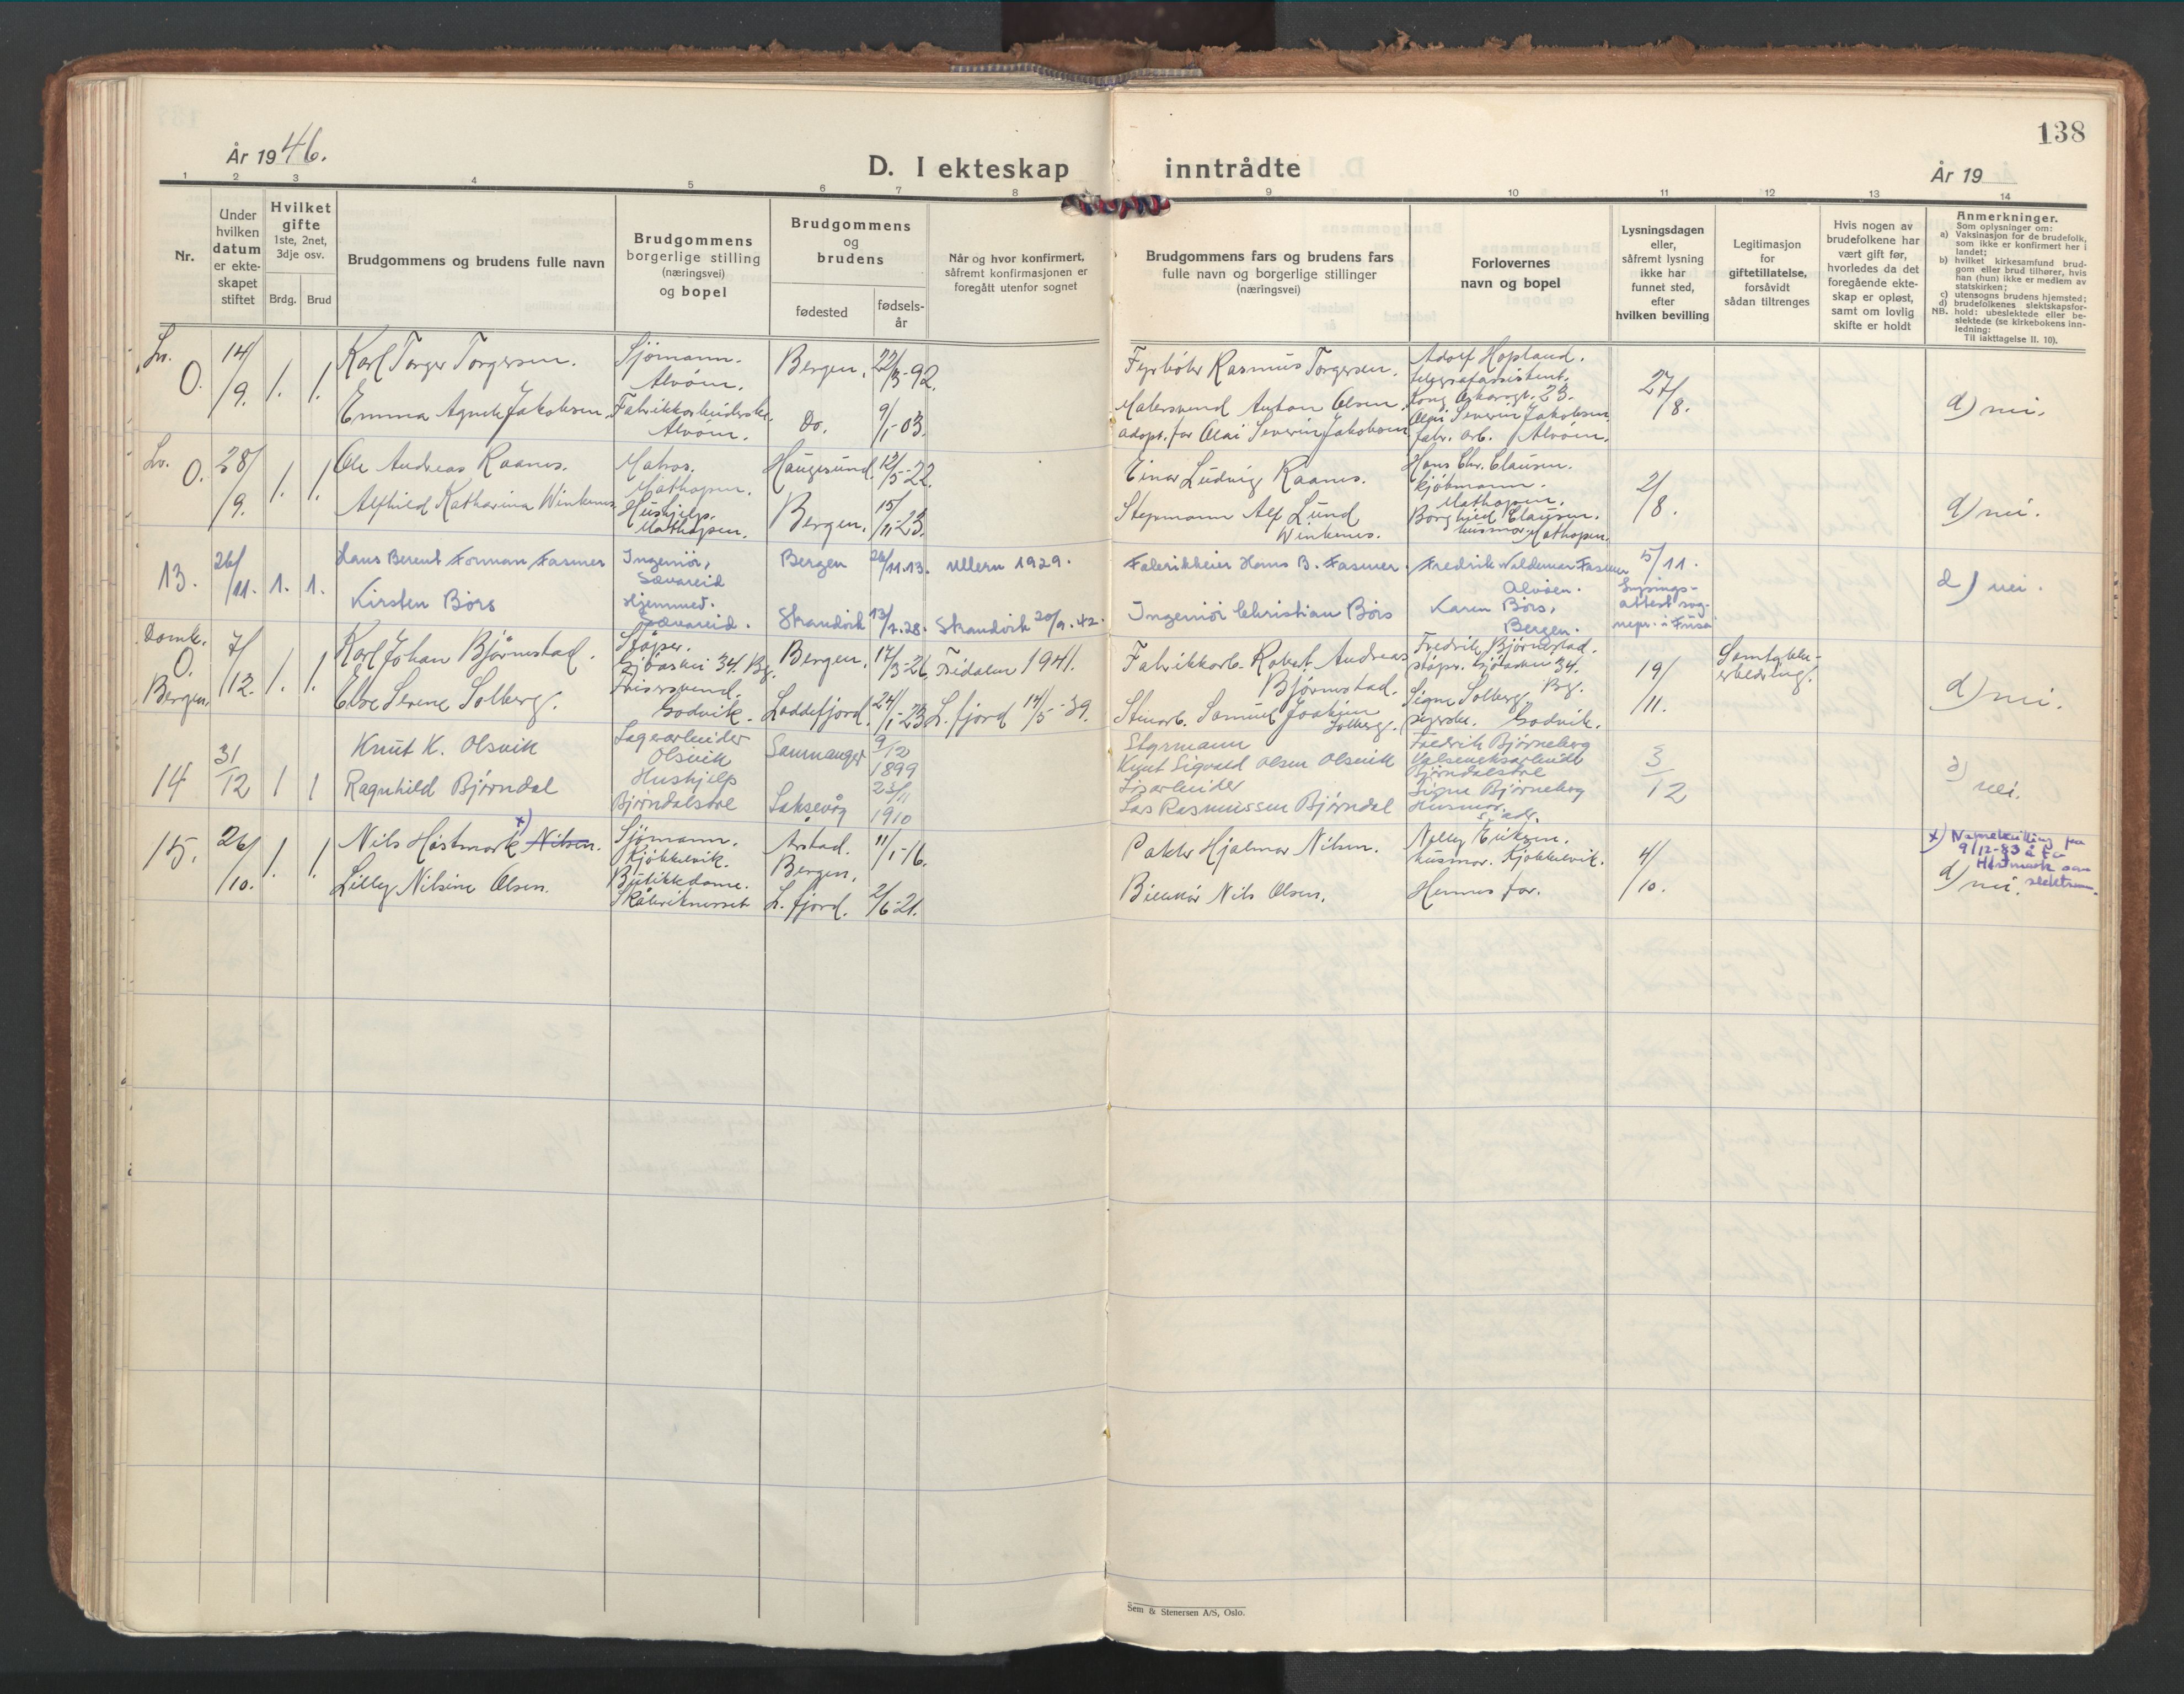 138
År 1946.
D. I ekteskap inntrådte
År 19
1 2 3 4 5 6 7 8 9 10 11 12 13 14
Nr.
Under
hvilken
datum
er ekte-
skapet
stiftet
Hvilket
gifte
1ste, 2net,
3dje osv.
Brdg. Brud
Brudgommens og brudens fulle navn
Brudgommens
borgerlige stilling
(næringsvei)
og bopel
Brudgommens
og
brudens
fødested
fødsels-
år
Når og hvor konfirmert,
såfremt konfirmasjonen er
foregått utenfor sognet
Brudgommens fars og brudens fars
fulle navn og borgerlige stillinger
(næringsvei)
Forlovernes
navn og bopel
Lysningsdagen
eller,
såfremt lysning
ikke har
funnet sted,
efter
hvilken bevilling
Legitimasjon
for
giftetillatelse,
forsåvidt
sådan tiltrenges
Hvis nogen av
brudefolkene har
vært gift før,
hvorledes da det
foregående ekte-
skap er opløst,
samt om lovlig
skifte er holdt
Anmerkninger.
Som oplysninger om:
a) Vaksinasjon for de brudefolk,
som ikke er konfirmert her i
landet;
b) hvilket kirkesamfund brud-
gom eller brud tilhører, hvis
han (hun) ikke er medlem av
statskirken;
c) utensogns brudens hjemsted;
d) brudefolkenes slektskapsfor-
NB. hold: ubeslektede eller be-
slektede (se kirkebokens inn-
ledning:
Til iakttagelse II. 10).
O.
14/9.
1. 1.
Karl Torger Torgersen.
Emma Agnete Jakobsen.
Sjömann.
Alvöen.
Fabrikkarbeiderske.
Alvöen.
Bergen. 22/3-92.
Do. 9/1-03.
Fyrböter Rasmus Torgersen.
Malersvend Anton Olsen.
adopt. far Olai Severin Jakobsen
Adolf Hopland.
telegrafassistent.
Kong Oskarsgt. 23.
Olai Severin Jakobsen.
fabr. arb. Alvöen.
27/8.
d) nei.
O.
28/9.
1. 1.
Ole Andreas Raanes.
Alfhild Katharina Winkenes.
Matros.
Mathopen.
Hushjelp.
Mathopen.
Haugesund. 12/5-22.
Bergen. 15/11 23.
Einar Ludvig Raanes.
Stepmann Alf Lund
Winkenes.
Hans Chr. Clausen.
kjöbmann.
Mathopen.
Borghild Clausen.
husmor. Mathopen.
2/8.
d) nei.
13.
26/11.
1. 1.
Hans Berent Forman Fasmer
Kirsten Börs
Ingeniör,
Sævareid
Hjemmev.
Sævareid.
Bergen 26/11.13. Ullern 1929.
Strandvik 13/7.28. Strandvik 20/9.42.
Fabrikkeier Hans B. Fasmer.
Ingeniör Christian Börs
Fredrik Waldemar Fasmer
Alvöen.
Karen Börs,
Bergen.
5/11.
Lysnings-
attest sog-
nepr. i Fusa
d) nei.
Domk.
O.
Bergen.
7/12.
1. 1.
Karl Johan Björnestad.
Else Serene Solberg.
Stöper.
34. Bg.
Frisörsvend.
Godvik.
Bergen. 17/3-26. Fridalen 1941.
Loddefjord. 24/1-23 L. fjord 14/5-39.
Fabrikkarb. Robert Andreas
Björnestad.
Stenarb. Samuel Joakim
Solberg.
Fredrik Björnestad.
stöper. 34.
Bg.
Signe Solberg.
syerske. Godvik.
19/11.
Samtykke-
erklæring.
d) nei.
14
31/12
1 1
Knut K. Olsvik
Ragnhild Bjørndal
Lagerarbeider
Olsvik
Hushjelp
Bjørndalstræ
Samnanger 9/12 1899
Laksevåg 23/11 1910
Styrmann
Knut Sigvald Olsen Olsvik
Lars Rasmussen Bjørndal
Fredrik Bjørneberg
Valseverksarbeider
Bjørndalstræ
Signe Bjørneberg
Husmor.
s. adr.
3/12
d) nei.
15.
26/10.
1. 1.
Nils Höstmark x) Nilsen.
Lilly Nilsine Olsen.
Sjömann.
Kjökkelvik.
Butikkdame.
Skåleviknesset
Årstad. 11/1-16.
Bergen.
L. fjord. 2/6-21.
Pakker Hjalmar Nilsen.
Nils Olsen.
Nelly Eriksen.
husmor. Kjökkelvik.
Hennes far.
4/10.
x) Navnebevilling på
9/12-83 å ta
Höstmark som
slektsn.
d) nei.
Sem & Stenersen A/S, Oslo.